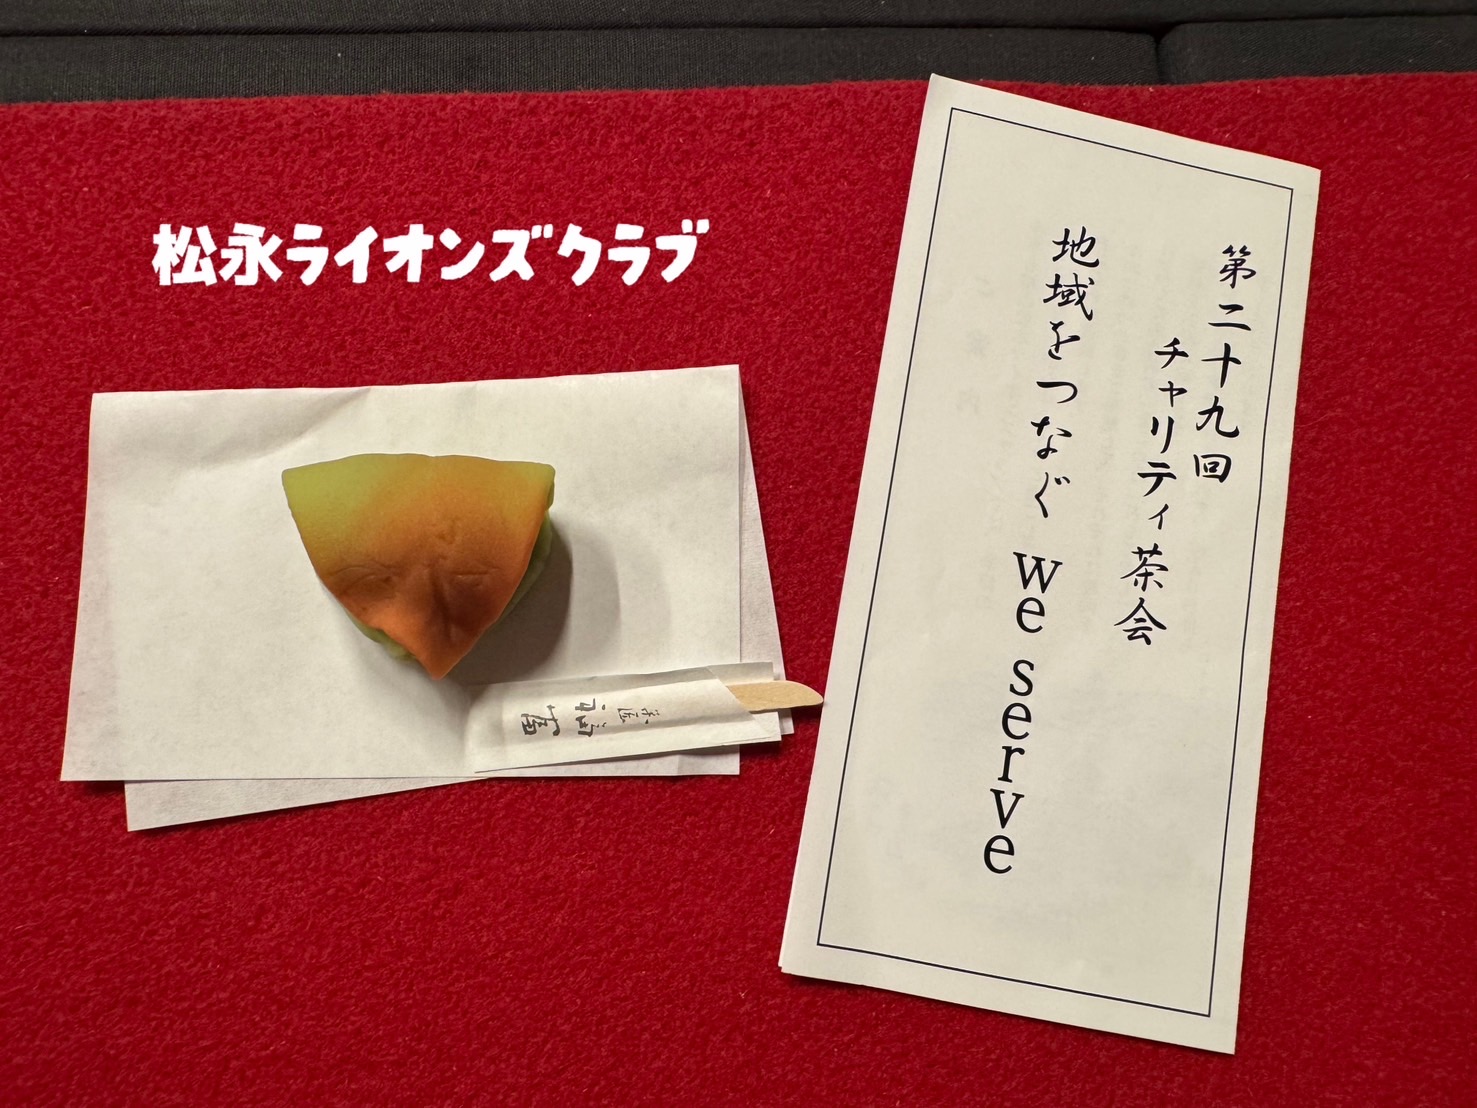 松永ライオンズクラブ
第二十九回
チャリティ茶会
地域をつなぐ we serve
菓匠